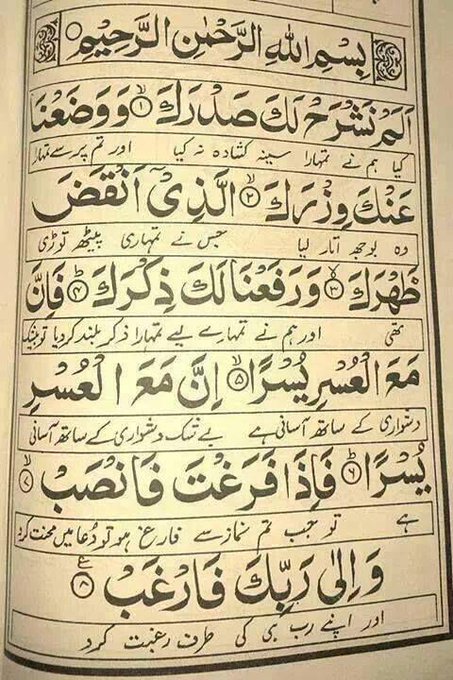 بِسْمِ اللهِ الرَّحْمٰنِ الرَّحِيْمِ
اَلَمْ نَشْرَحْ لَكَ صَدْرَكَ ۙ﴿۱﴾ وَوَضَعْنَا
کیا ہم نے تمہارا سینہ کشادہ نہ کیا اور تم پر سے تمہارا
عَنْكَ وِزْرَكَ ۙ﴿۲﴾ الَّذِیْۤ اَنْقَضَ
وہ بوجھ اتار لیا جس نے تمہاری پیٹھ توڑی
ظَهْرَكَ ۙ﴿۳﴾ وَرَفَعْنَا لَكَ ذِكْرَكَ ؕ﴿۴﴾ فَاِنَّ
تھی اور ہم نے تمہارے لیے تمہارا ذکر بلند کر دیا تو بیشک
مَعَ الْعُسْرِ يُسْرًا ۙ﴿۵﴾ اِنَّ مَعَ الْعُسْرِ
دشواری کے ساتھ آسانی ہے بے شک دشواری کے ساتھ آسانی
يُسْرًا ؕ﴿۶﴾ فَاِذَا فَرَغْتَ فَانْصَبْ ۙ﴿۷﴾
ہے تو جب تم نماز سے فارغ ہو تو دُعا میں محنت کرو
وَاِلٰى رَبِّكَ فَارْغَبْ ﴿۸﴾ ع
اور اپنے رب ہی کی طرف رغبت کرو